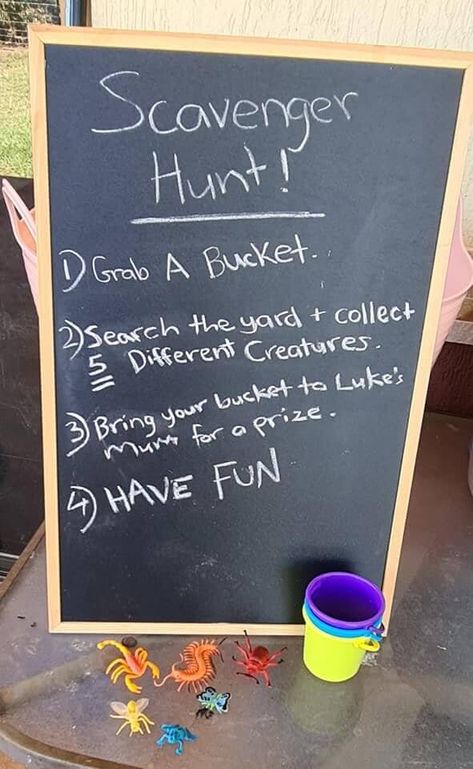 Scavenger
Hunt!
1) Grab A Bucket..
2) Search the yard + collect
5 Different Creatures.
3) Bring your bucket to Luke's
Mum for a prize.
4) HAVE FUN